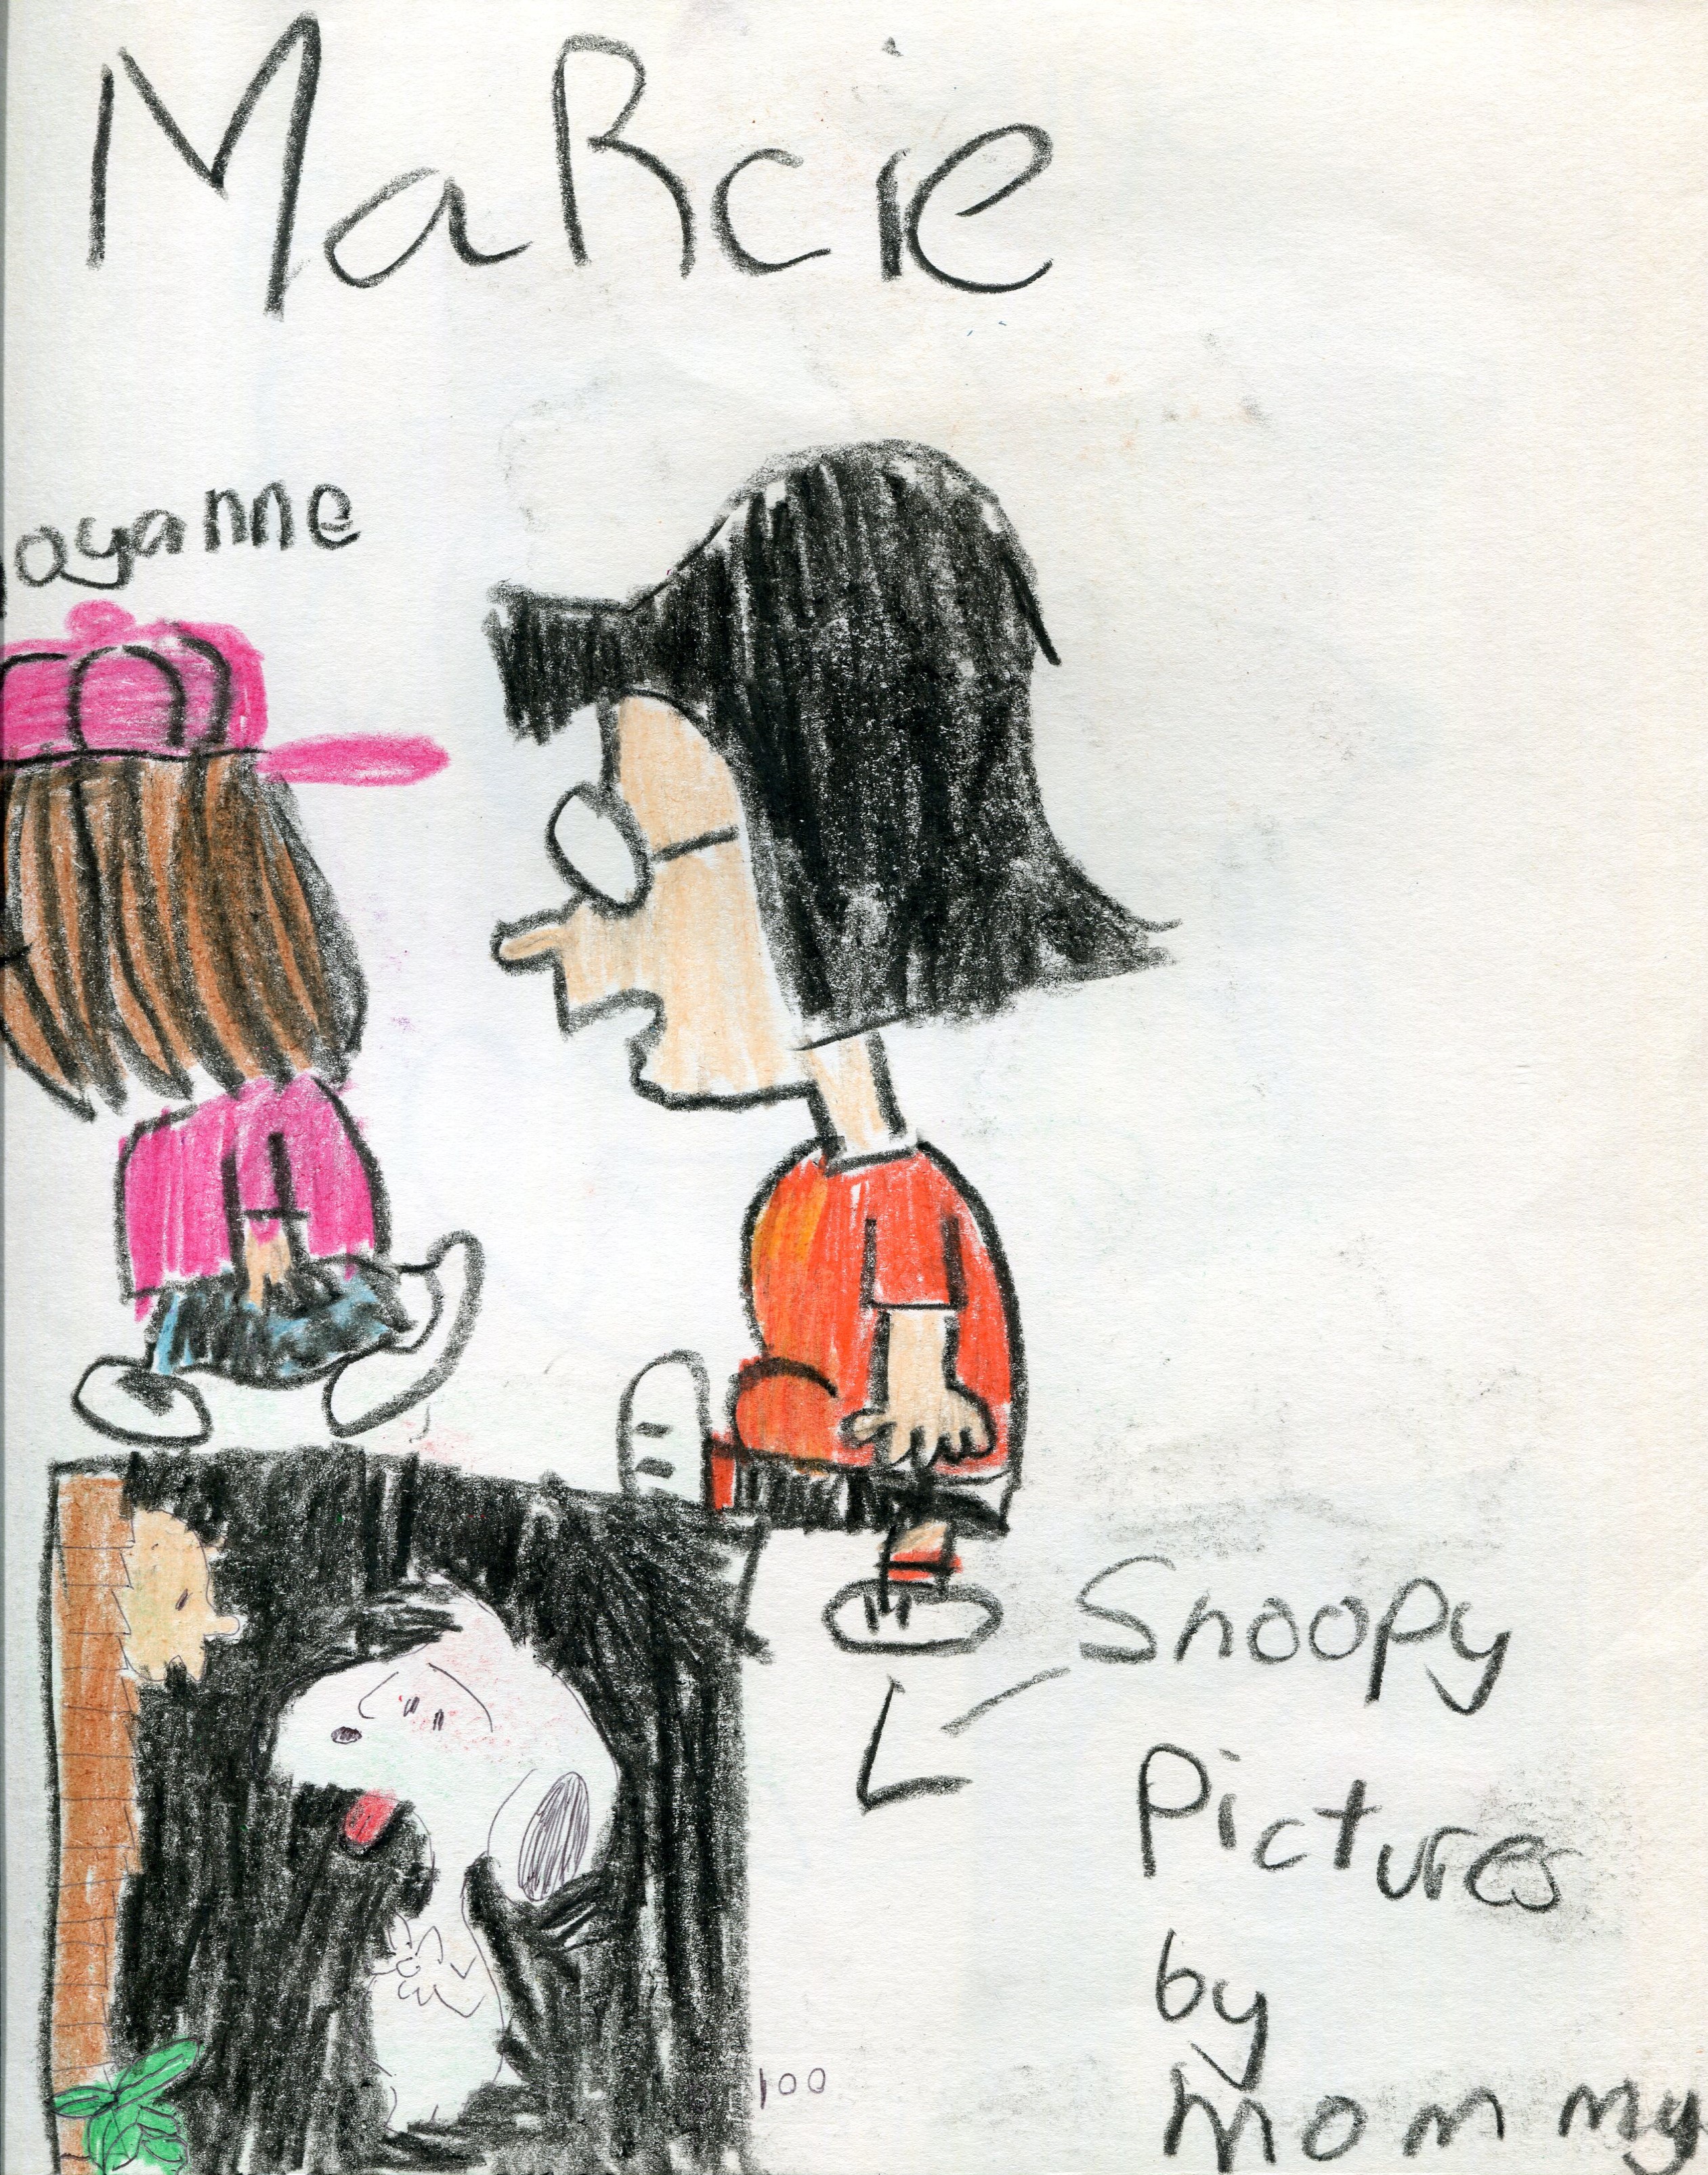 MaRcie
oyanne
Snoopy
Pictures
by
mommy
100